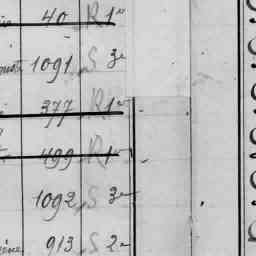 40 R 1e
1091 S 3e
377 R 1e
499 R 1e
1092 S 3e
913 S 2e